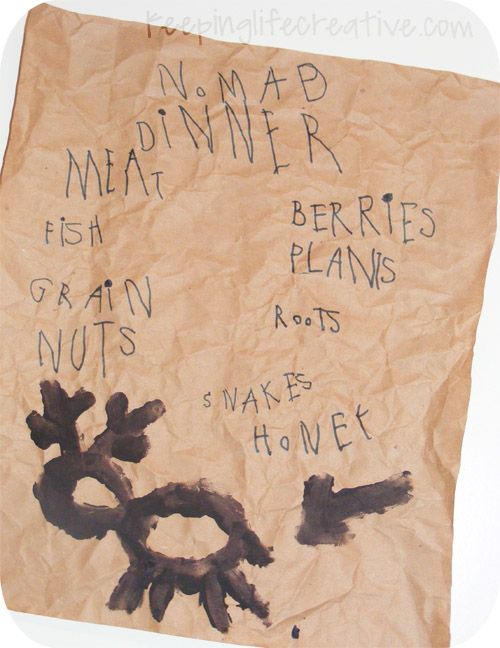 keepinglifecreative.com
NoMAD
DiNNER
MEAT
FiSH
GRAiN
NUTS
BERRiES
PLANTS
ROOTS
SNAKES
HONEY